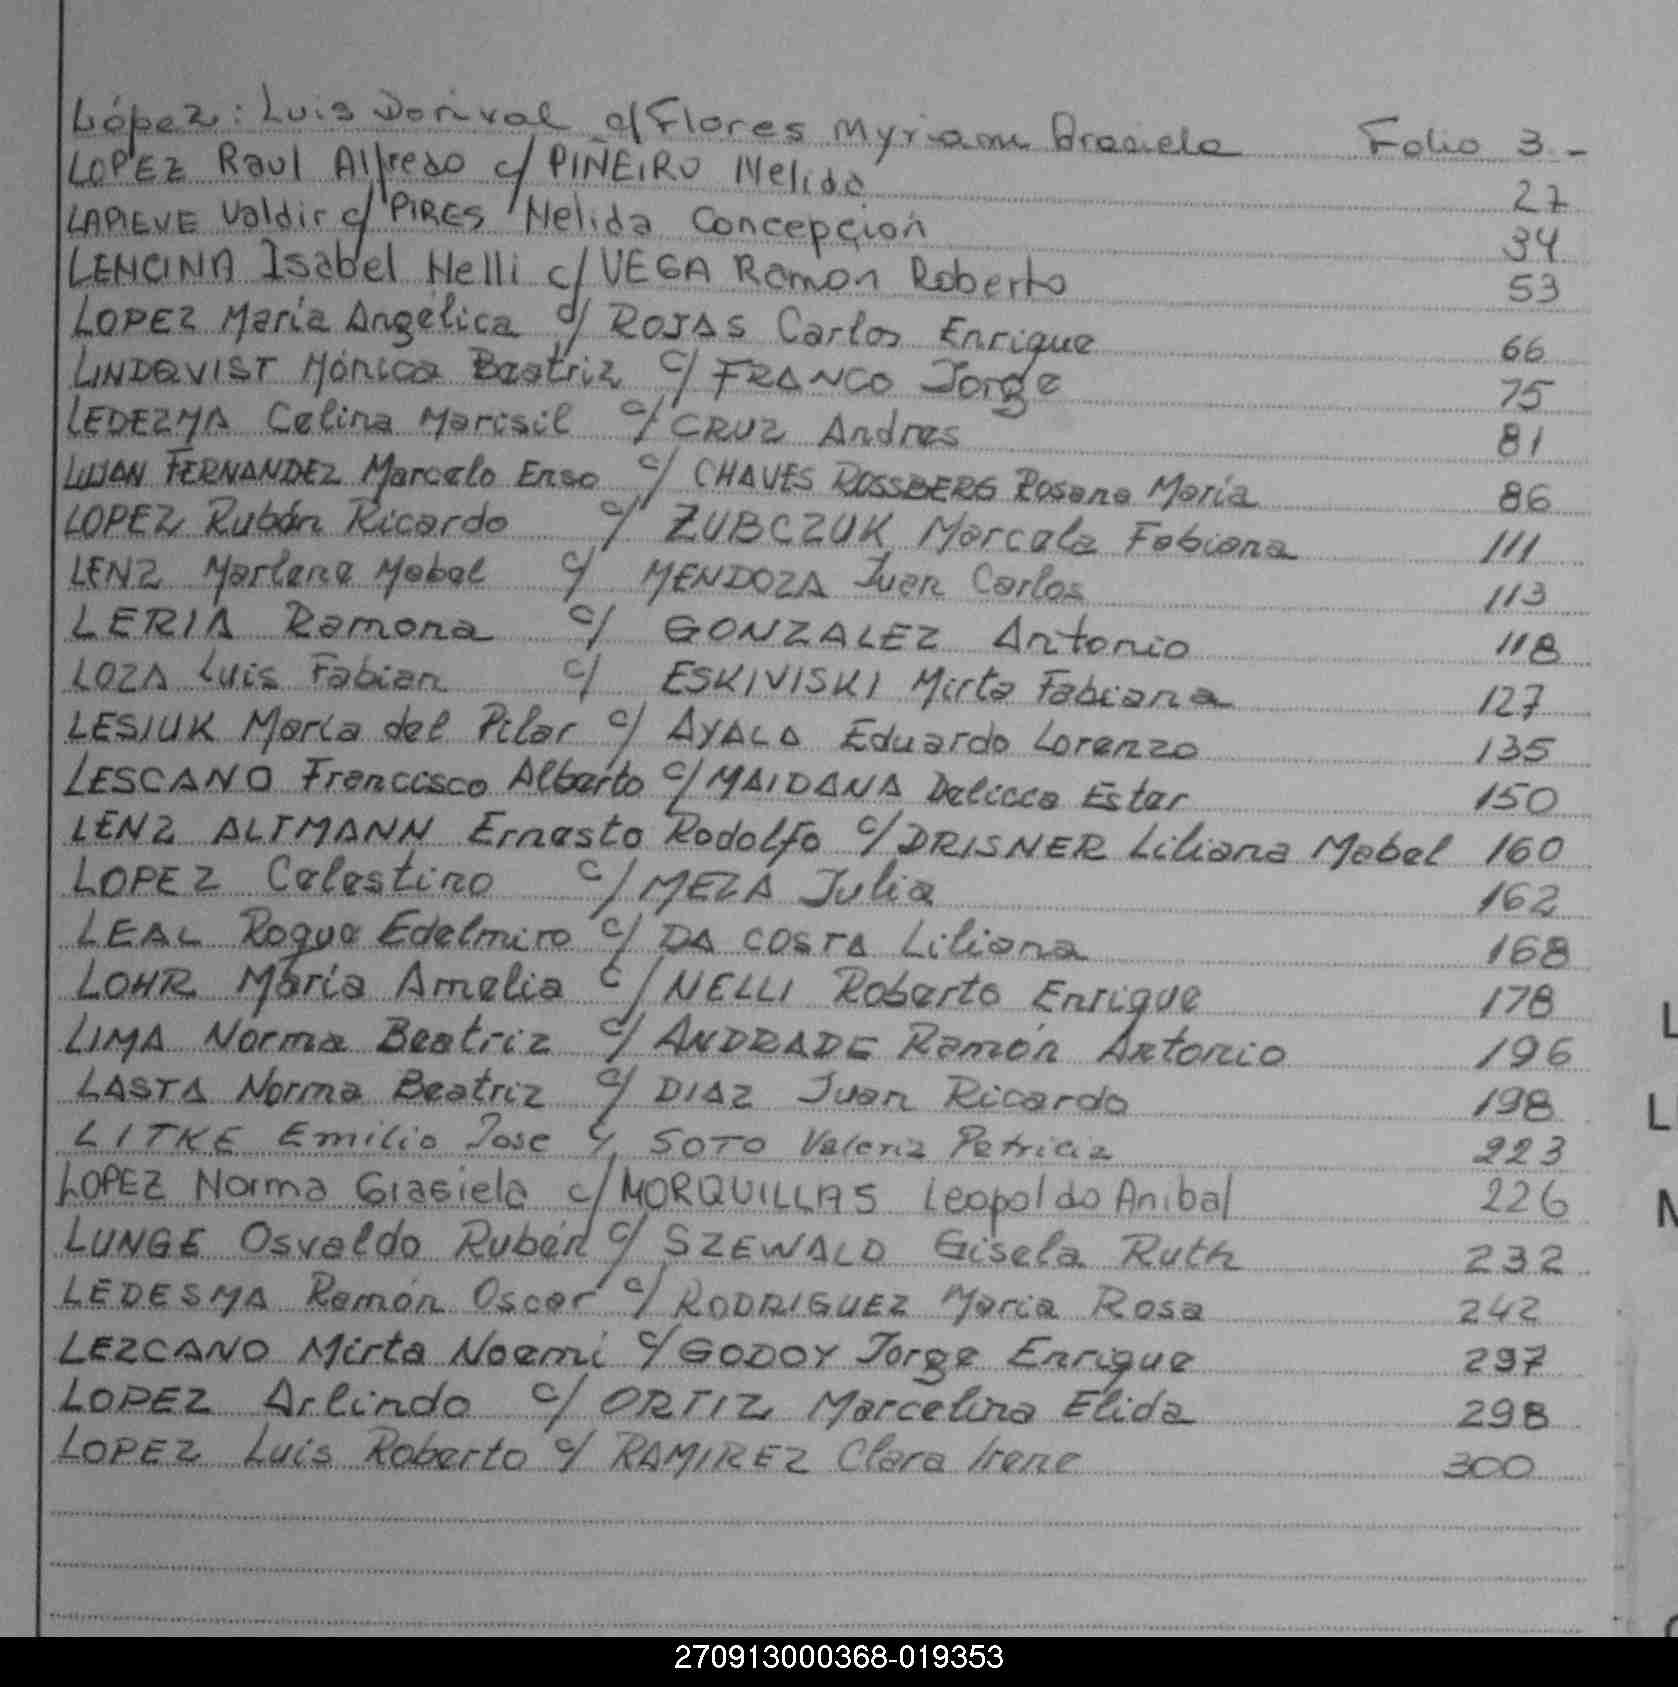 López: Luis Dorival c/ Flores Myriam Graciela Folio 3.-
LOPEZ Raul Alfredo c/ PIÑEIRO Nelida 27
LAPIEVE Valdir c/ PIRES Nelida Concepción 34
LENCINA Isabel Nelli c/ VEGA Ramon Roberto 53
LOPEZ María Angélica c/ ROJAS Carlos Enrique 66
LINDQVIST Mónica Beatriz c/ FRANCO Jorge 75
LEDEZMA Celina Marisil c/ CRUZ Andres 81
LUJAN FERNANDEZ Marcelo Enso c/ CHAVES ROSSBERG Rosana María 86
LOPEZ Rubén Ricardo c/ ZUBCZUK Marcela Fabiana 111
LENZ Marlene Mabel c/ MENDOZA Juan Carlos 113
LERIA Ramona c/ GONZALEZ Antonio 118
LOZA Luis Fabian c/ ESKIVISKI Mirta Fabiana 127
LESIUK María del Pilar c/ AYALA Eduardo Lorenzo 135
LESCANO Francisco Alberto c/ MAIDANA Delicca Ester 150
LENZ ALTMANN Ernesto Rodolfo c/ DRISNER Liliana Mabel 160
LOPEZ Celestino c/ MEZA Julia 162
LEAL Roque Edelmiro c/ DA COSTA Liliana 168
LOHR María Amelia c/ NELLI Roberto Enrique 178
LIMA Norma Beatriz c/ ANDRADE Ramón Antonio 196
LASTA Norma Beatriz c/ DIAZ Juan Ricardo 198
LITKE Emilio Jose c/ SOTO Valeria Patricia 223
LOPEZ Norma Grasiela c/ MORQUILLAS Leopoldo Anibal 226
LUNGE Osvaldo Rubén c/ SZEWALD Gisela Ruth 232
LEDESMA Ramón Oscar c/ RODRIGUEZ María Rosa 242
LEZCANO Mirta Noemí c/ GODOY Jorge Enrique 297
LOPEZ Arlindo c/ ORTIZ Marcelina Elida 298
LOPEZ Luis Roberto c/ RAMIREZ Clara Irene 300
270913000368-019353